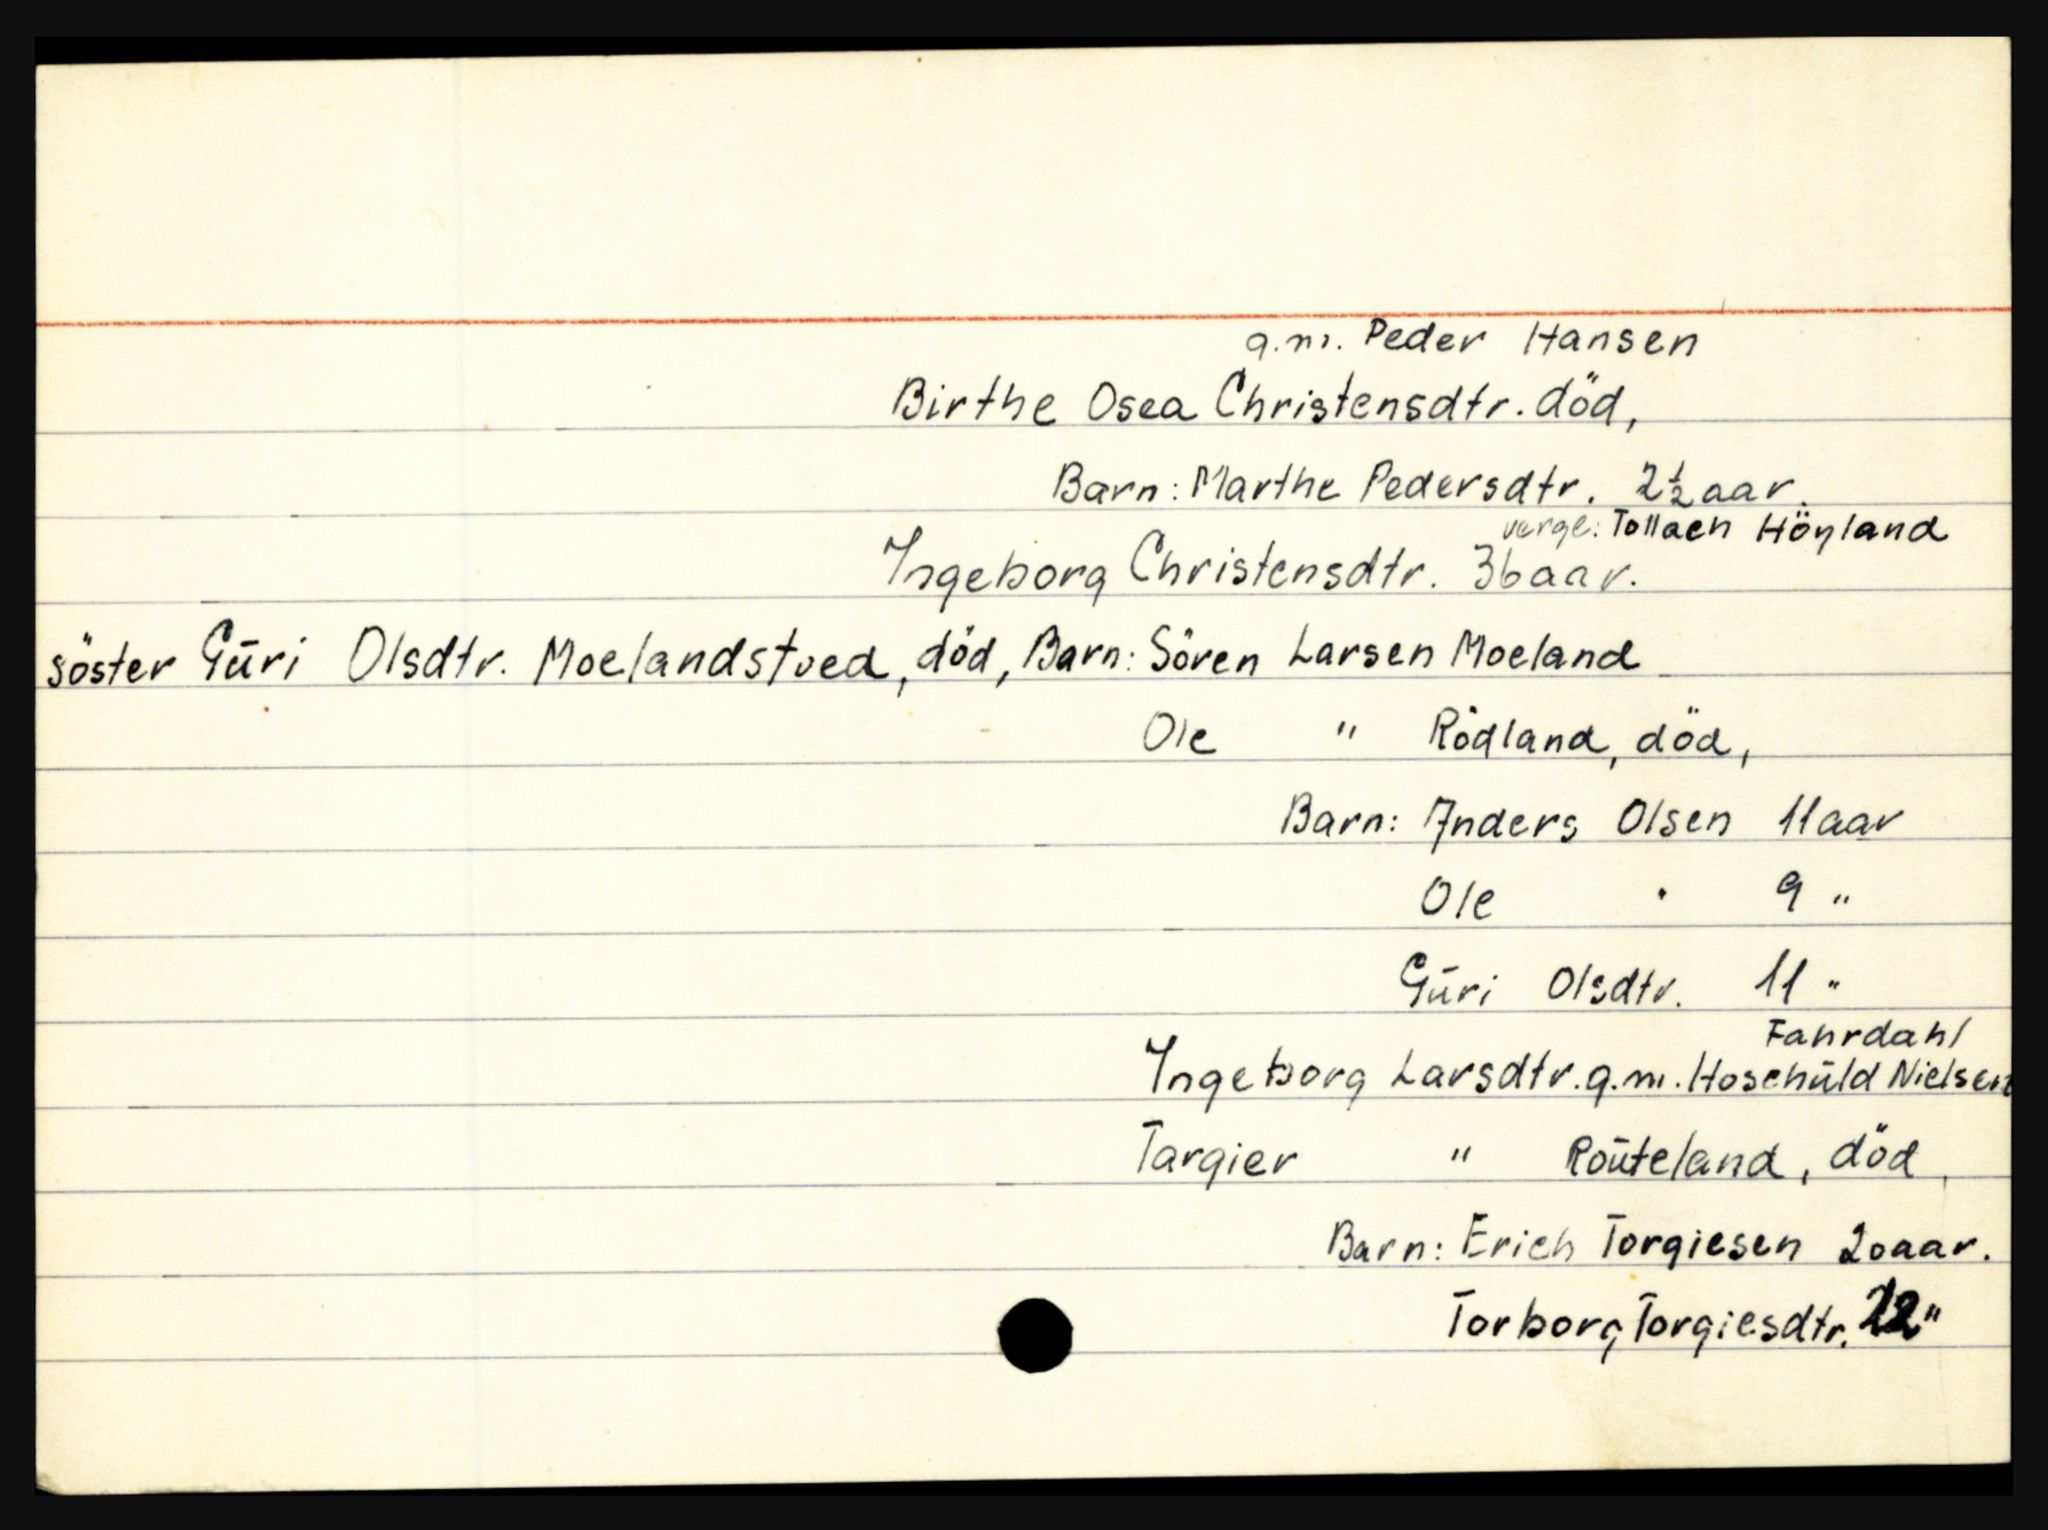 g.m. Peder Hansen
Birthe Osea Christensdtr. död,
Barn: Marthe Pedersdtr. 2½ aar.
verge: Tollaen Höyland
Ingeborg Christensdtr. 36 aar.
söster Gūri Olsdtr. Moelandstved, död, Barn: Sören Larsen Moeland
Ole " Rödland, död,
Barn: Anders Olsen 11 aar
Ole " 9 "
Gūri Olsdtr. 11 "
Fahrdahl
Ingeborg Larsdtr. g.m. Hoschūld Nielsen
Targier " Roūteland, död,
Barn: Erich Torgiesen 20 aar.
Torborg Torgiesdtr. 22 "